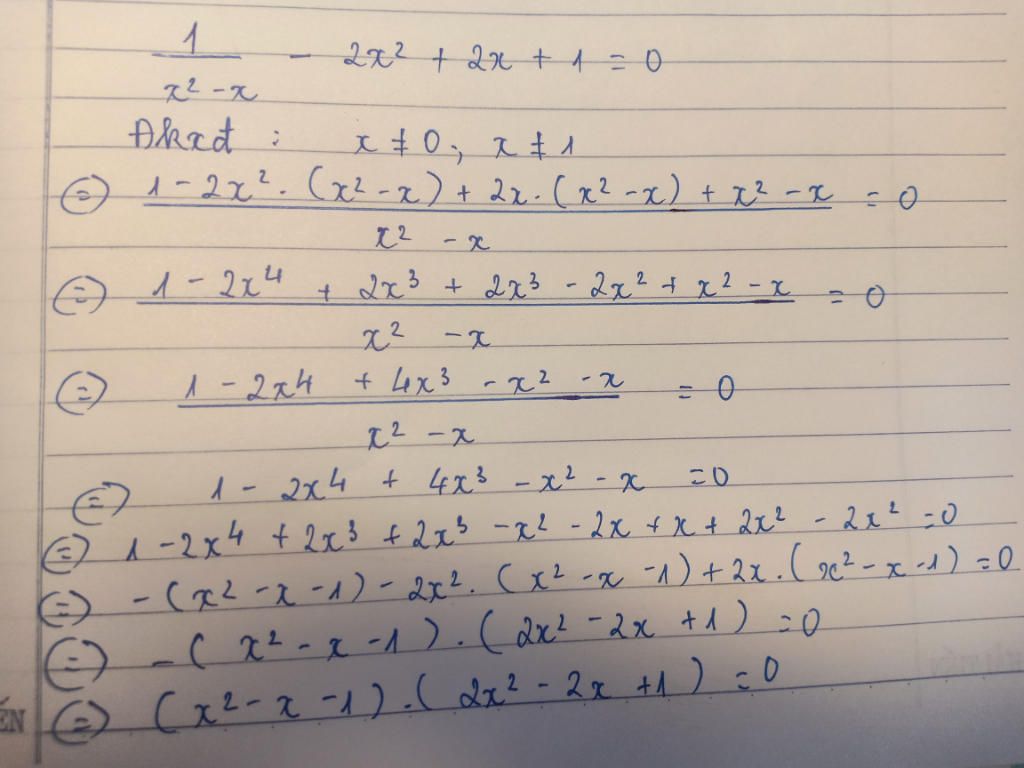 1/(x² - x) - 2x² + 2x + 1 = 0
Đkxđ : x ≠ 0 ; x ≠ 1
(=) (1 - 2x² . (x² - x) + 2x . (x² - x) + x² - x)/(x² - x) = 0
(=) (1 - 2x⁴ + 2x³ + 2x³ - 2x² + x² - x)/(x² - x) = 0
(=) (1 - 2x⁴ + 4x³ - x² - x)/(x² - x) = 0
(=) 1 - 2x⁴ + 4x³ - x² - x = 0
(=) 1 - 2x⁴ + 2x³ + 2x³ - x² - 2x + x + 2x² - 2x² = 0
(=) - (x² - x - 1) - 2x² . (x² - x - 1) + 2x . (x² - x - 1) = 0
(=) - (x² - x - 1) . (2x² - 2x + 1) = 0
(=) (x² - x - 1) . (2x² - 2x + 1) = 0